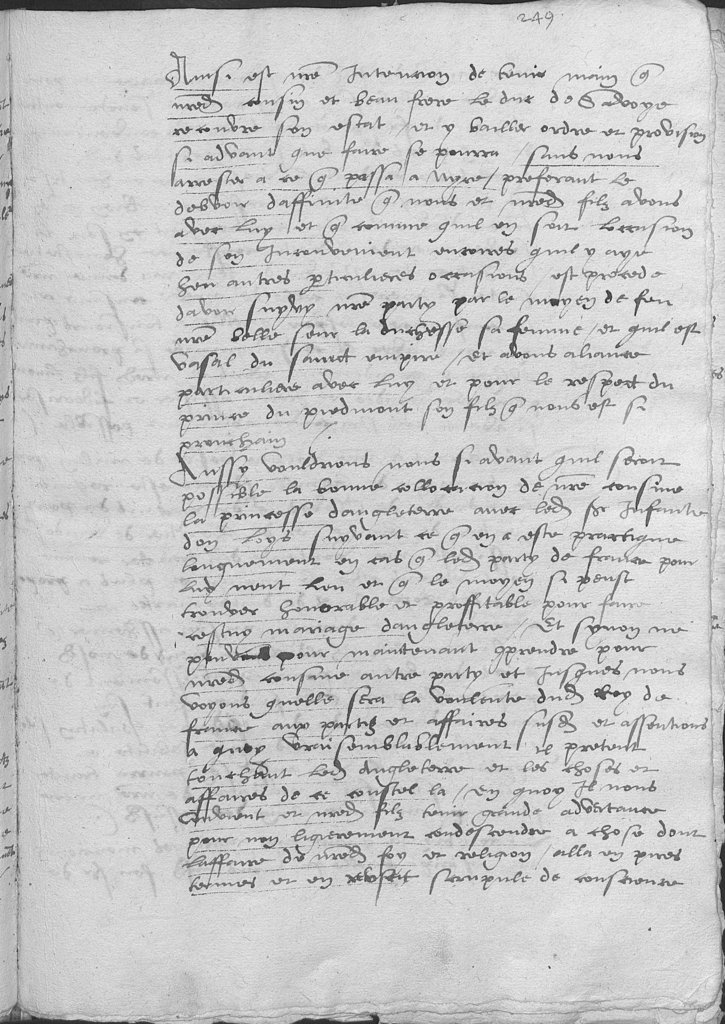 249
Aussi est nre Intencion de tenir main q̄
nred cousin et beau frere le duc de Savoye
recouvre son estat / et y bailler ordre et provision
si advant que faire se pourra / sans nous
arrester a ce q̄ passa a Nyce / preferant le
debvoir daffinite q̄ nous et nred filz avons
avec luy et q̄ comme quil en soit loccasion
de son Inconvenient encoires quil y aye
heu autres pticulieres occasions est procede
davoir suyvy nre party par le moyen de feu
nre belle seur la duchesse sa femme / et quil est
vasal du sainct empire / et avons aliance
particuliere avec luy et pour le respect du
prince du piedmont son filz q̄ nous est si
prouchain /
Aussy vouldrions nous si avant quil seroit
possible la bonne collocacion de nre cousine
la princesse dangleterre avec led sr Infante
don Loys suyvant ce q̄ en a este practique
longuement en cas q̄ led party de france pour
luy neut lieu et q̄ le moyen si peust
trouver honorable et proffitable pour faire
cestuy mariage dangleterre / Et synon ne
pour maintenant apprendre pour
nred cousine autre party et Jusques nous
voyons quelle sera la voulente dud Roy de
france aux partiz et affaires susd et assentions
a quoy vraisemblablement Il pretent
touchant led Angleterre et les choses et
affaires de ce coustel la / en quoy Il nous
convient et nred filz tenir grande advertance
pour non ligierement condescendre a chose dont
laffaire de nred foy et religion / alla en pires
termes et en scrupule de conscience